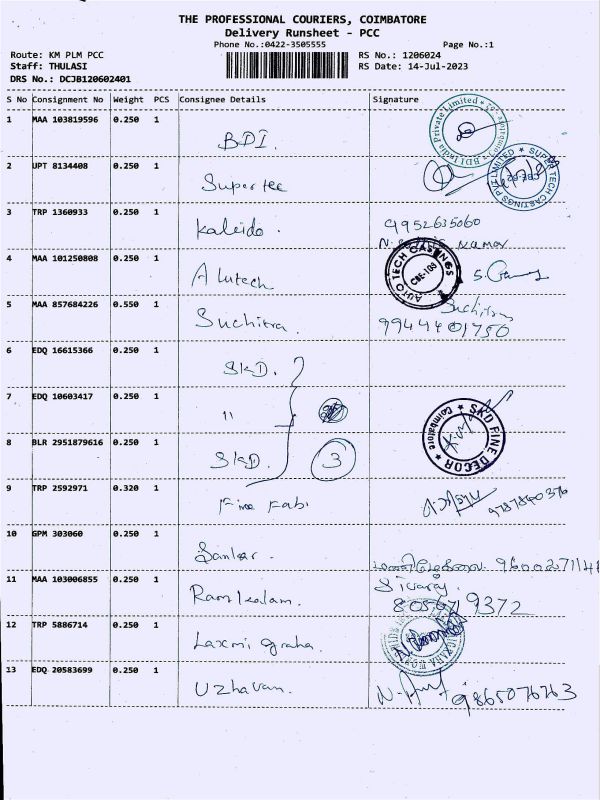 THE PROFESSIONAL COURIERS, COIMBATORE
Delivery Runsheet - PCC
Phone No.:0422-3505555 Page No.:1
Route: KM PLM PCC RS No.: 1206024
Staff: THULASI RS Date: 14-Jul-2023
DRS No.: DCJB120602401
S No Consignment No Weight PCS Consignee Details Signature
1 MAA 103819596 0.250 1 BDI.
BDI India Private Limited
2 UPT 8134408 0.250 1 Supertec
SUPER TECH CASTINGS PVT LIMITED
3 TRP 1360933 0.250 1 Kaleido. 9952635060
4 MAA 101250808 0.250 1 Alutech
AUTO TECH CASTINGS
CBE-108
5 MAA 857684226 0.550 1 Suchitra. Suchitra
9944401750
6 EDQ 16615366 0.250 1 SKD.
7 EDQ 10603417 0.250 1 "
8 BLR 2951879616 0.250 1 SKD. 3
SKD FINE DECOR
Coimbatore
9 TRP 2592971 0.320 1 Fine Fab 9787840376
10 GPM 303060 0.250 1 Sankar.
11 MAA 103006855 0.250 1 Ramkalam. Sivaraj
12 TRP 5886714 0.250 1 Laxmi graha.
13 EDQ 20583699 0.250 1 Uzhavan. 9865076763